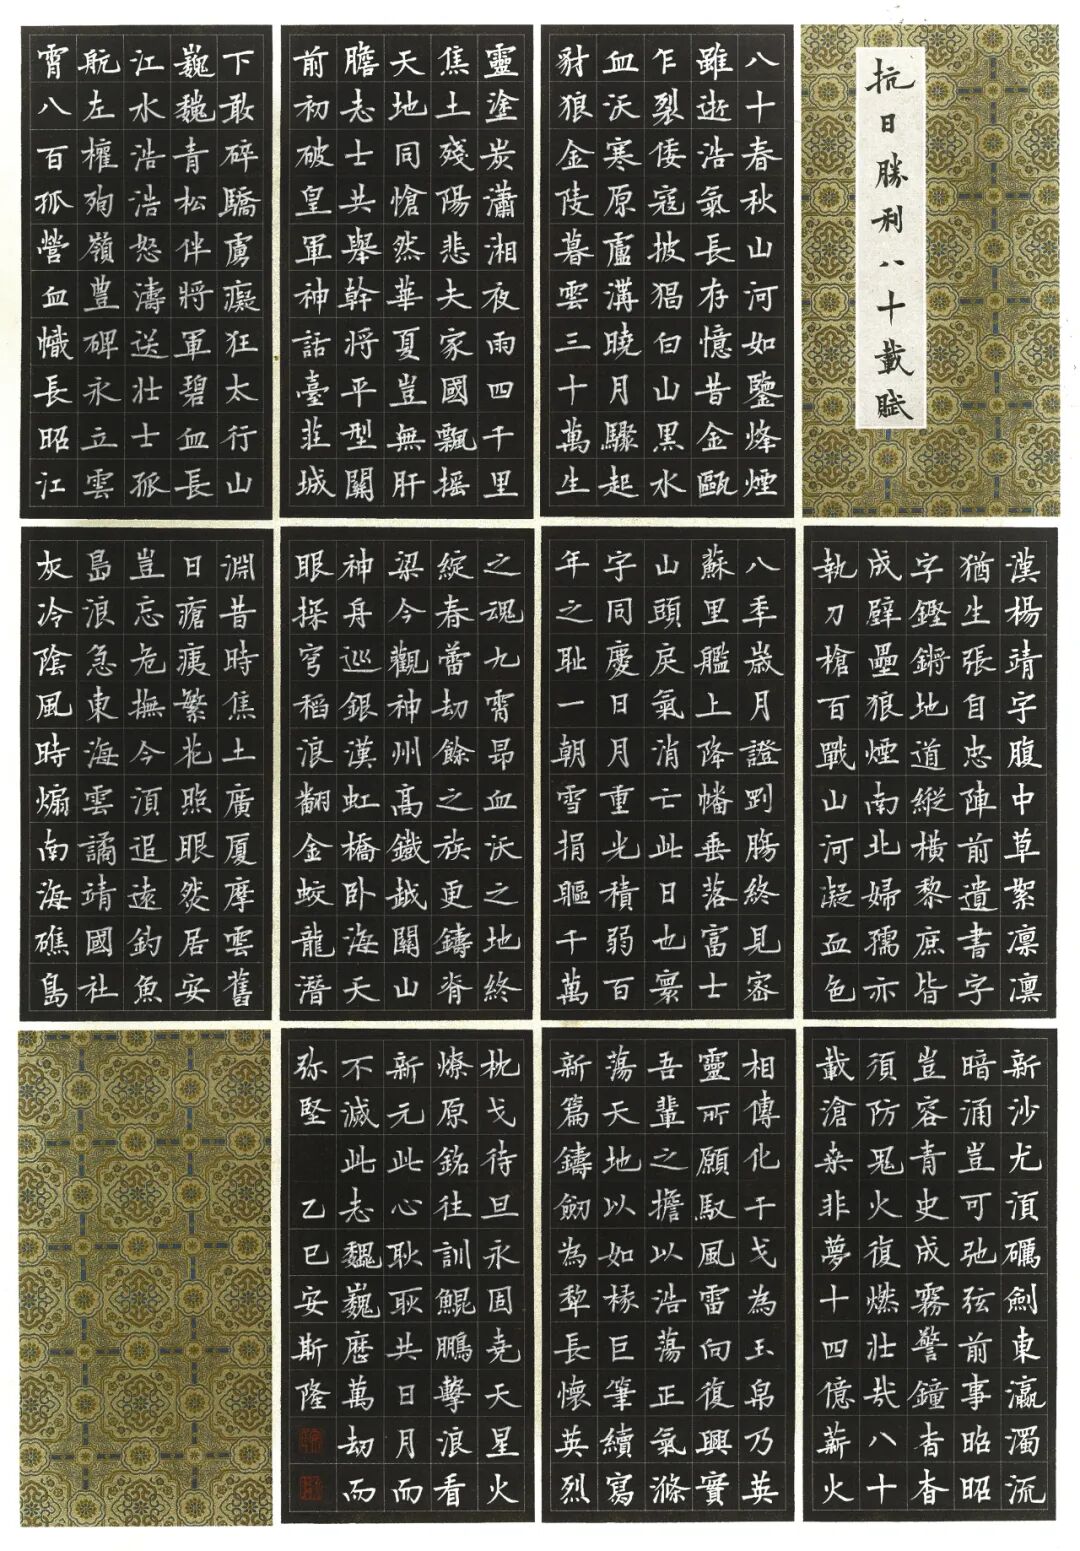 抗日勝利八十載賦
八十春秋山河如鑒烽煙
雖逝浩氣長存憶昔金甌
乍裂倭寇披猖白山黑水
血沃寒原盧溝曉月驟起
豺狼金陵暮雲三十萬生
靈塗炭瀟湘夜雨四千里
焦土殘陽悲夫家國飄搖
天地同愴然華夏豈無肝
膽志士共舉幹將平型關
前初破皇軍神話臺莊城
下敢碎驕虜癡狂太行山
巍巍青松伴將軍碧血長
江水浩浩怒濤送壯士孤
航左權殉嶺豐碑永立雲
霄八百孤營血幟長昭江
漢楊靖宇腹中草絮凜凜
猶生張自忠陣前遺書字
字鏗鏘地道縱橫黎庶皆
成壁壘狼煙南北婦孺亦
執刀槍百戰山河凝血色
八年歲月證剛腸終見密
蘇里艦上降幡垂落富士
山頭戾氣消亡此日也寰
宇同慶日月重光積弱百
年之恥一朝雪捐軀千萬
之魂九霄昂血沃之地終
綻春蕾劫餘之族更鑄脊
梁今觀神州高鐵越關山
神舟巡銀漢虹橋臥海天
眼探穹稻浪翻金蛟龍潛
淵昔時焦土廣廈摩雲舊
日瘡痍繁花照眼然居安
豈忘危撫今須追遠釣魚
島浪急東海雲譎靖國社
灰冷陰風時煽南海礁島
新沙尤須礪劍東瀛濁流
暗涌豈可弛弦前事昭昭
豈容青史成霧警鐘杳杳
須防鬼火復燃壯哉八十
載滄桑非夢十四億薪火
相傳化干戈為玉帛乃英
靈所願馭風雷向復興實
吾輩之擔以浩蕩正氣滌
蕩天地以如椽巨筆續寫
新篇鑄劍為犁長懷英烈
枕戈待旦永固堯天星火
燎原銘往訓鯤鵬擊浪看
新元此心耿耿共日月而
不滅此志巍巍歷萬劫而
彌堅 乙巳安斯隆